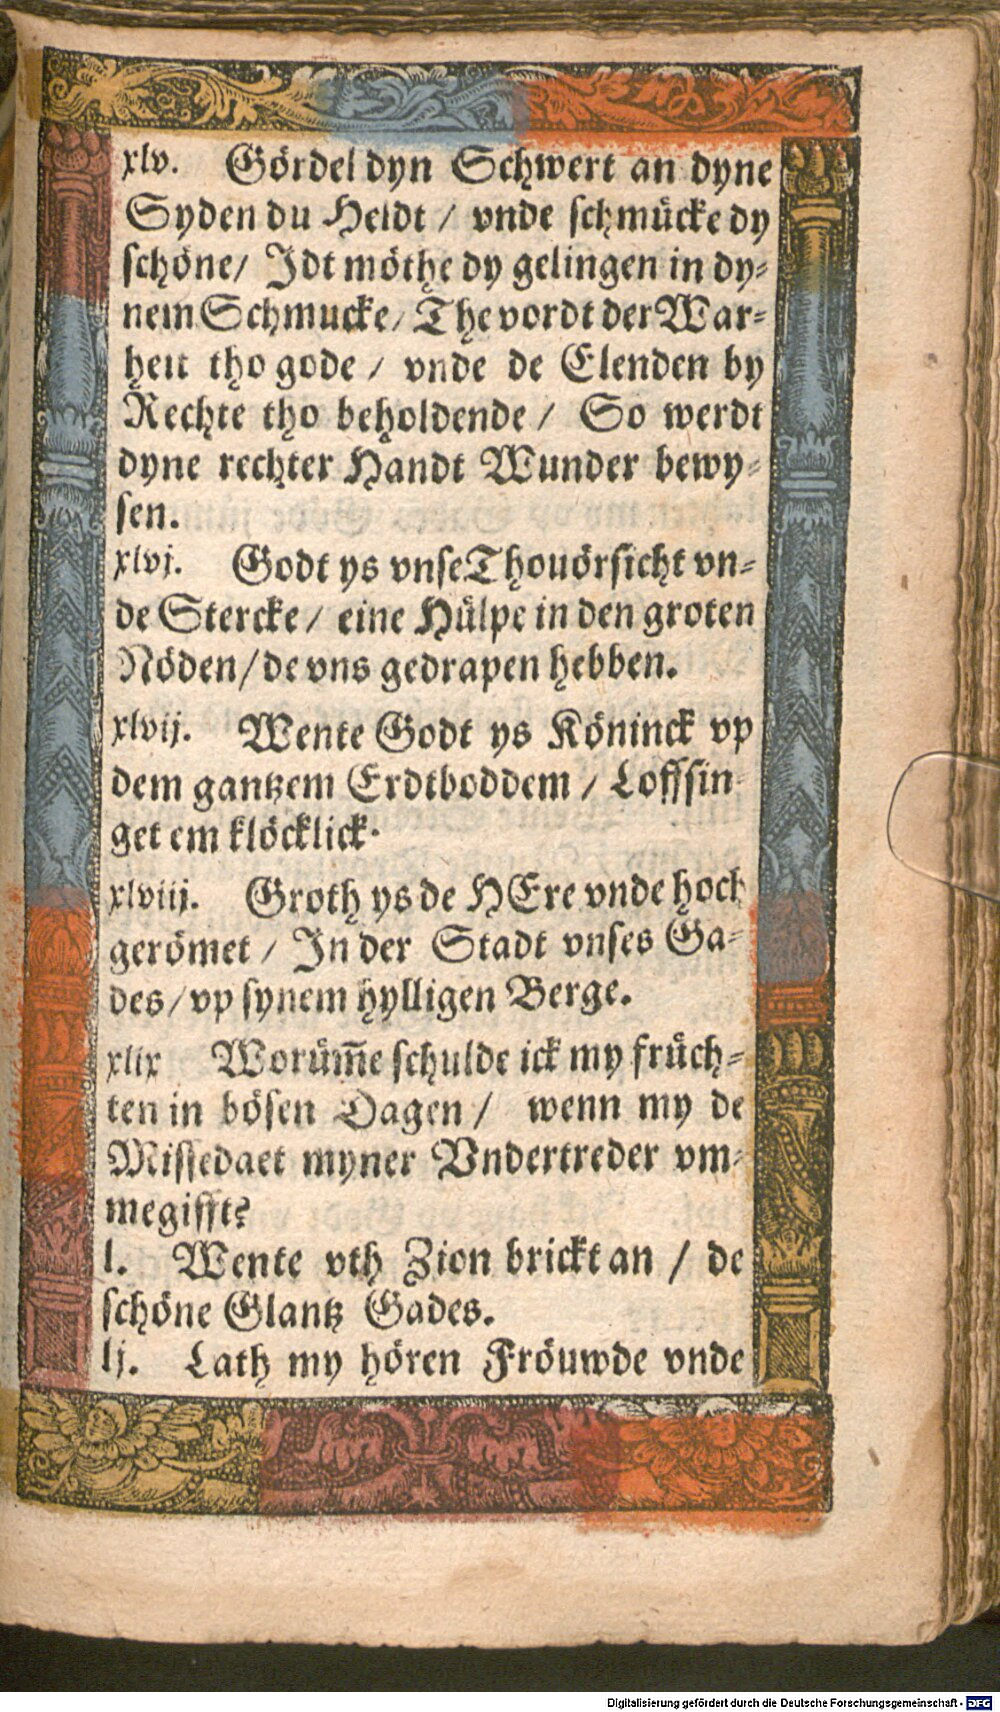 xlv. Gördel dyn Schwert an dyne
Syden du Heldt / vnde schmücke dy
schöne/ Jdt möthe dy gelingen in dy-
nem Schmucke/ The vordt der War-
heit tho gode / vnde de Elenden by
Rechte tho beholdende / So werdt
dyne rechter Handt Wunder bewy-
sen.
xlvj. Godt ys vnse Thouörsicht vn-
de Stercke / eine Hülpe in den groten
Nöden/de vns gedrapen hebben.
xlvij. Wente Godt ys Köninck vp
dem gantzem Erdtboddem / Loffsin-
get em klöcklick.
xlviij. Groth ys de HEre vnde hoch
gerömet / Jn der Stadt vnses Ga-
des/vp synem hylligen Berge.
xlix Worüm̃e schulde ick my früch-
ten in bösen Dagen / wenn my de
Missedaet myner Vndertreder vm-
megifft?
l. Wente vth Zion brickt an / de
schöne Glantz Gades.
lj. Lath my hören Fröuwde vnde
Digitalisierung gefördert durch die Deutsche Forschungsgemeinschaft - DFG